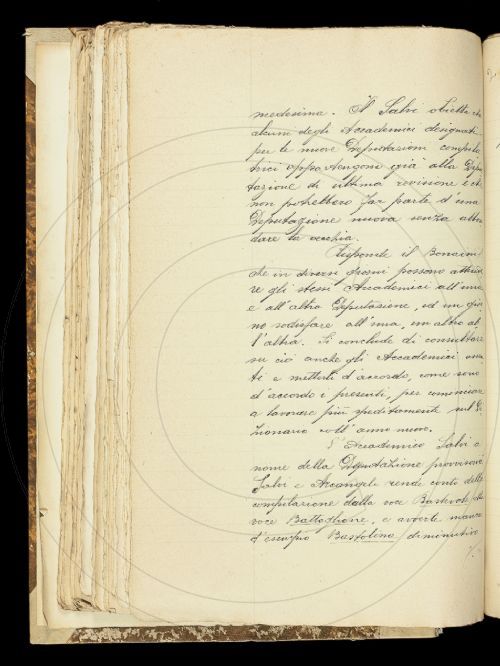 medesima. Il Salvi obietta che
alcuni degli Accademici designati
per le nuove Deputazioni compila-
trici appartengono già alla Depu-
tazione di ultima revisione e che
non potrebbero far parte d'una
Deputazione nuova senza abban-
dare la vecchia.
Risponde il Bonaini
che in diversi giorni possono attende-
re gli stessi Accademici all'una
e all'altra Deputazione, ed un gior-
no sodisfare all'una, un altro al-
l'altra. Si conclude di consultare
su ciò anche gli Accademici assen-
ti e mettersi d'accordo, come sono
d'accordo i presenti, per cominciare
a lavorare più speditamente sul Di-
zionario coll'anno nuovo.
L'Accademico Salvi a
nome della Deputazione provvisoria
Salvi e Arcangeli rende conto della
compilazione dalla voce Bastevole alla
voce Battaglione, e avverte mancare
d'esempio Bastolina diminutivo